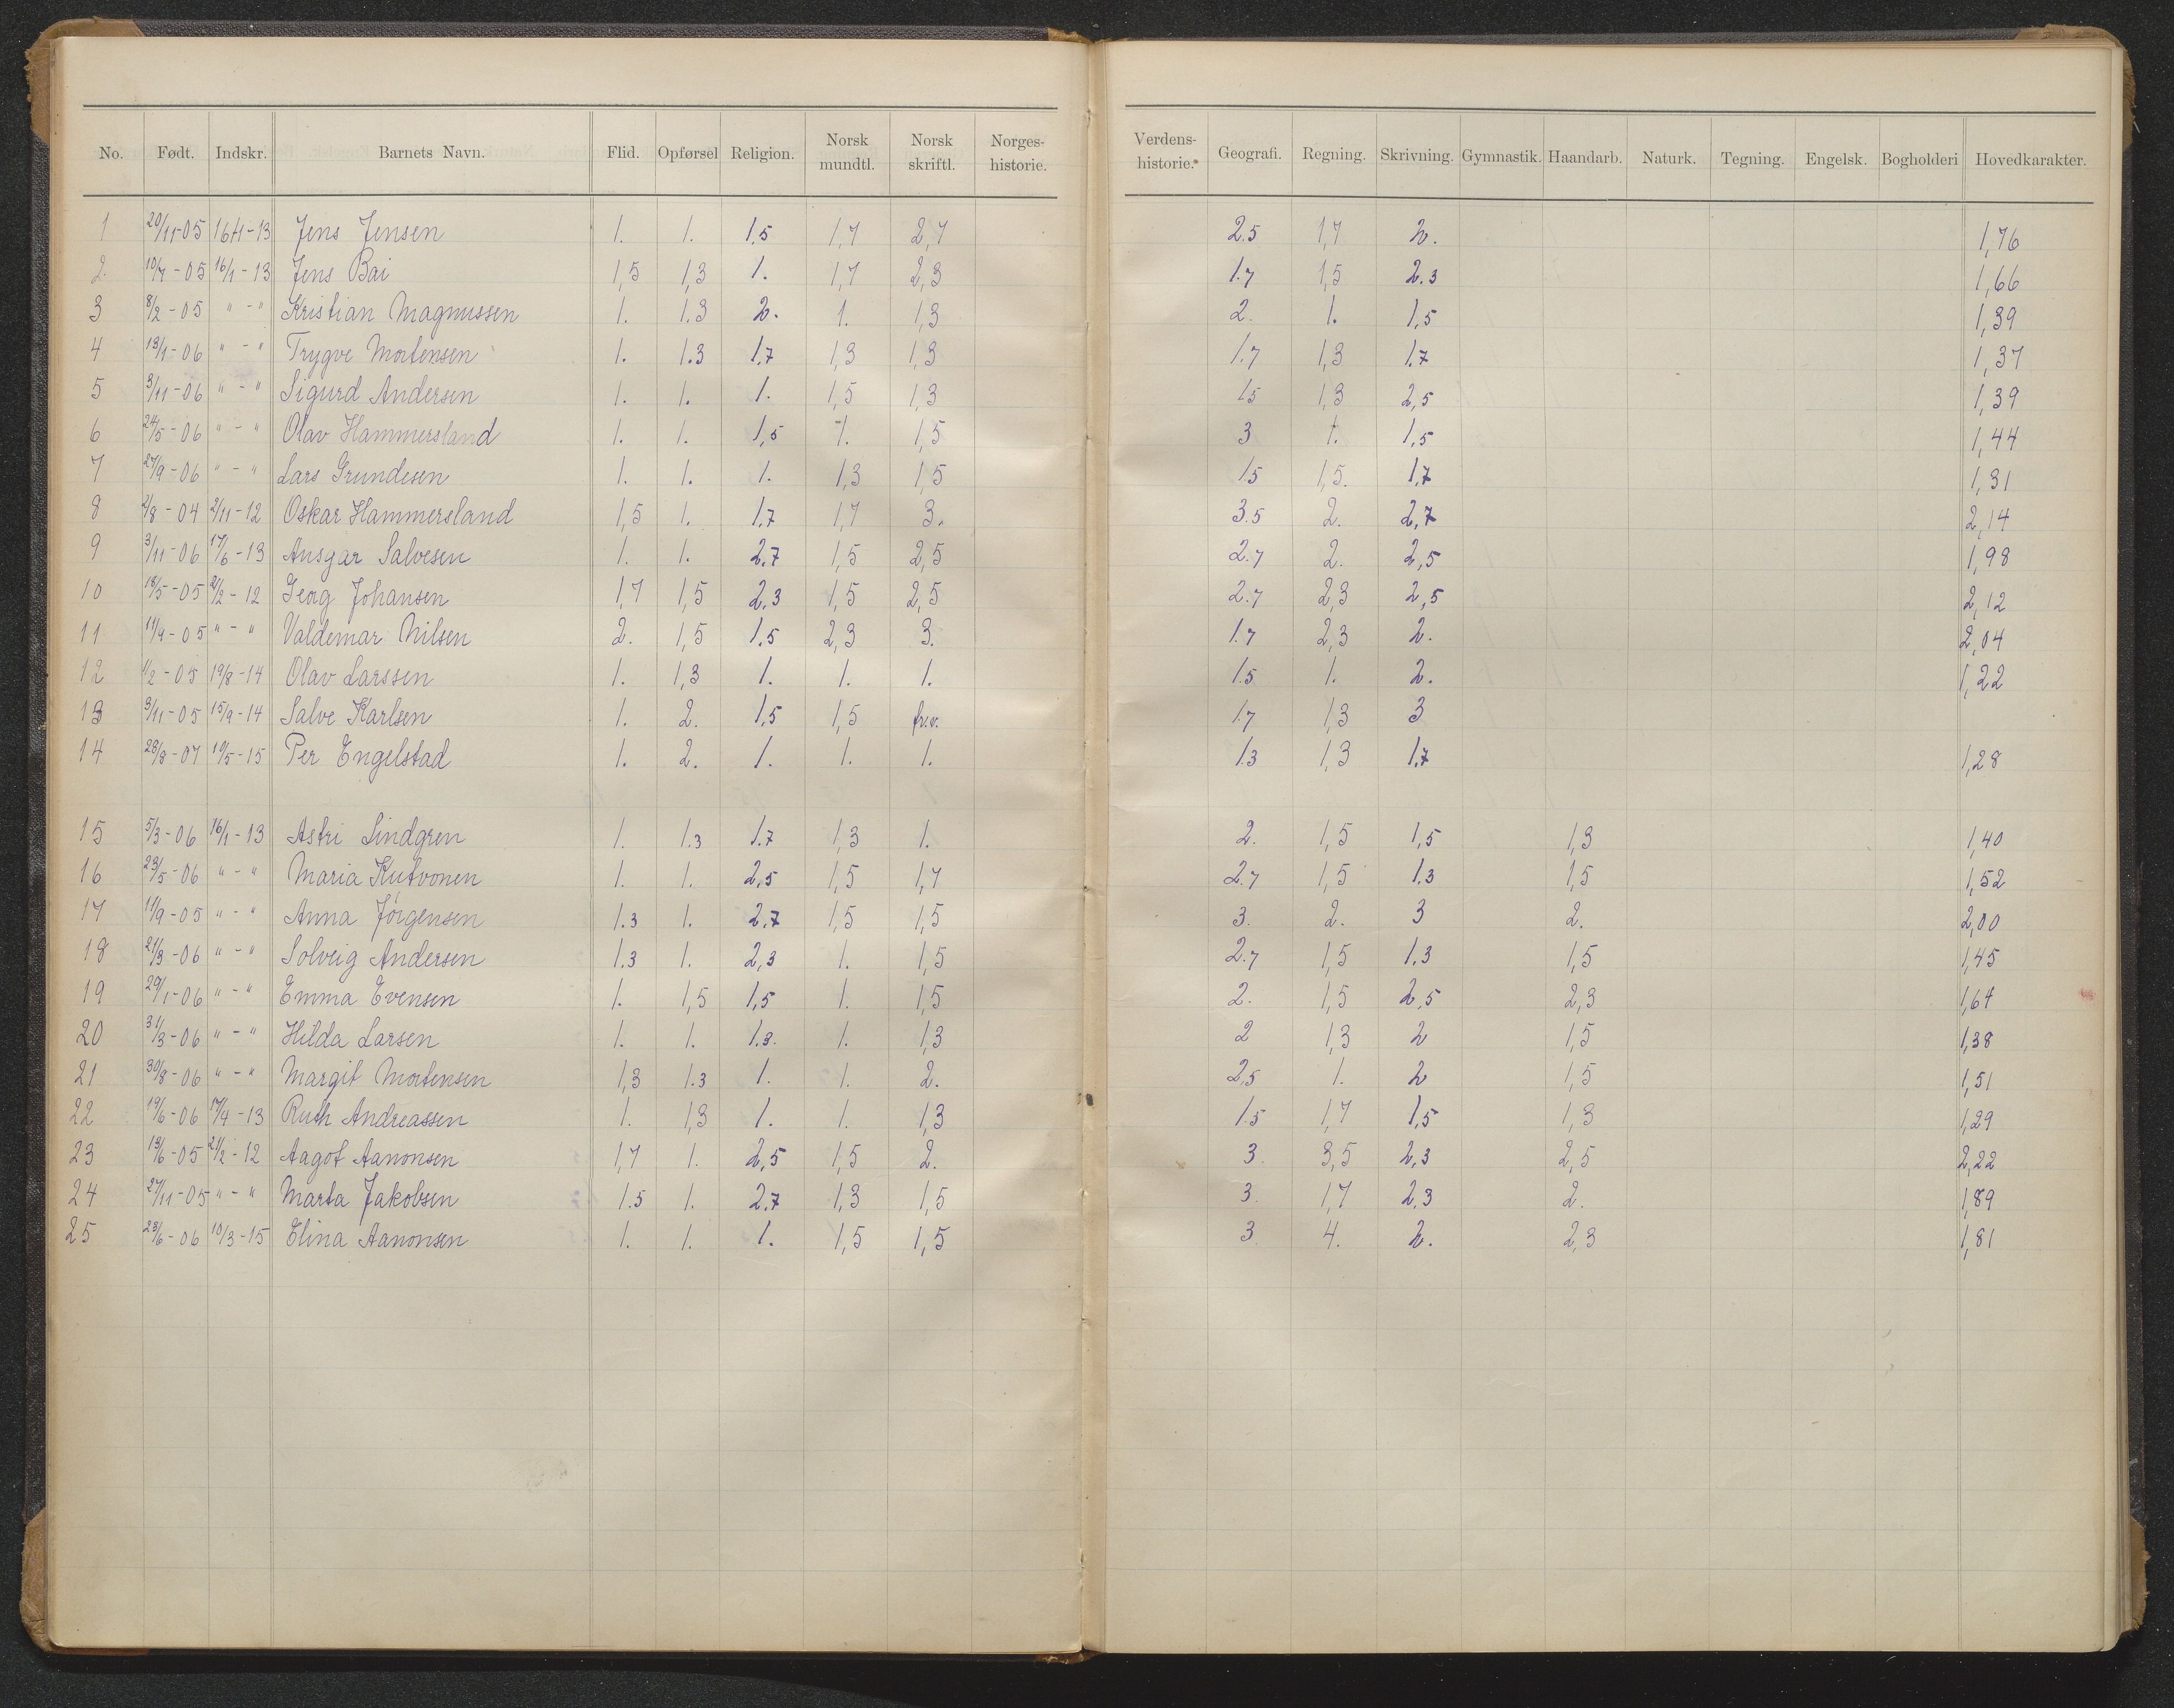 No. Født. Indskr. Barnets Navn. Flid. Opførsel Religion. Norsk mundtl. Norsk skriftl. Norges-historie. Verdens-historie. Geografi. Regning. Skrivning. Gymnastik. Haandarb. Naturk. Tegning. Engelsk. Bogholderi Hovedkarakter.
1 20/11-05 16/1-13 Jens Jensen 1. 1. 1,5 1,7 2,7 2.5 1,7 2. 1,76
2. 10/7-05 16/1-13 Jens Bai 1,5 1,3 1. 1,7 2,3 1.7 1,5 2.3 1,66
3 8/2-05 " - " Kristian Magnussen 1. 1.3 2. 1. 1,3 2. 1. 1,5 1,39
4 13/1-06 " - " Trygve Mortensen 1. 1.3 1,7 1,3 1,3 1.7 1,3 1,7 1,37
5 3/11-06 " - " Sigurd Andersen 1. 1. 1. 1,5 1,3 1.5 1,3 2,5 1,39
6 24/5-06 " - " Olav Hammersland 1. 1. 1,5 1. 1,5 3 1. 1,5 1,44
7 27/9-06 " - " Lars Grundesen 1. 1. 1. 1,3 1,5 1.5 1,5. 1,7 1,31
8 2/8-04 2/11-12 Oskar Hammersland 1,5 1. 1,7 1,7 3. 3.5 2. 2,7 2,14
9 3/11-06 17/6-13 Ansgar Salvesen 1. 1. 2,7 1,5 2,5 2.7 2. 2,5 1,98
10 18/5-05 2/2-12 Georg Johansen 1,7 1,5 2.3 1,5 2,5 2.7 2,3 2,5 2,12
11 11/9-05 " - " Valdemar Nilsen 2. 1,5 1.5 2,3 3. 1.7 2,3 2. 2,04
12 1/2-05 19/8-14 Olav Larssen 1. 1,3 1. 1. 1. 1.5 1. 2. 1,22
13 3/11-05 15/9-14 Salve Karlsen 1. 2. 1,5 1,5 frv. 1.7 1,3 3
14 28/8-07 10/5-15 Per Engelstad 1. 2. 1. 1. 1. 1.3 1,3 1,7 1,28
15 5/3-06 16/1-13 Astri Lindgren 1. 1.3 1.7 1,3 1. 2. 1,5 1,5 1,3 1,40
16 23/5-06 " - " Maria Kutvonen 1. 1. 2,5 1,5 1,7 2.7 1,5 1.3 1,5 1,52
17 11/9-05 " - " Anna Jörgensen 1.3 1. 2.7 1,5 1,5 3. 2. 3 2. 2,00
18 21/3-06 " - " Solveig Andersen 1.3 1. 2,3 1. 1,5 2.7 1,5 1.3 1,5 1,45
19 29/1-06 " - " Emma Evensen 1. 1,5 1,5 1. 1,5 2. 1,5 2,5 2,3 1,64
20 31/3-06 " - " Hilda Larsen 1. 1. 1.3. 1. 1,3 2 1,3 2 1,5 1,38
21 30/8-06 " - " Margit Mortensen 1,3 1.3 1. 1. 2. 2,5 1. 2 1,5 1,51
22 19/6-06 17/4-13 Ruth Andreassen 1. 1,3 1. 1. 1,3 1.5 1,7 1,5 1,3 1,29
23 13/6-05 21/2-12 Aagot Aanonsen 1,7 1. 2,5 1,5 2. 3. 3,5 2,3 2,5 2,22
24 27/11-05 " - " Marta Jakobsen 1.5 1. 2.7 1,3 1,5 3. 1,7 2,3 2. 1,89
25 23/6-06 10/3-15 Elina Aanonsen 1. 1. 1. 1,5 1,5 3 4. 2. 2,3 1,81